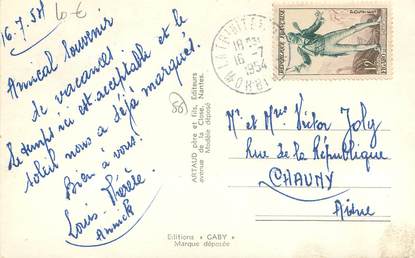 16.7.54
10 €
Amical souvenir
de vacances
le temps ici est acceptable et le
soleil nous a déjà marqués.
Bien à vous!
Louis. Thérèse.
Annick
58
ARTAUD père et fils, Editeurs
avenue de la Close, Nantes.
Modèle déposé
Editions « GABY »
Marque déposée
LA TRINITE
18 H
16 -7
1954
MORBIHAN
REPUBLIQUE FRANÇAISE
POSTES
12F
Mr et Mme Victor Joly
Rue de la République
CHAUNY
Aisne